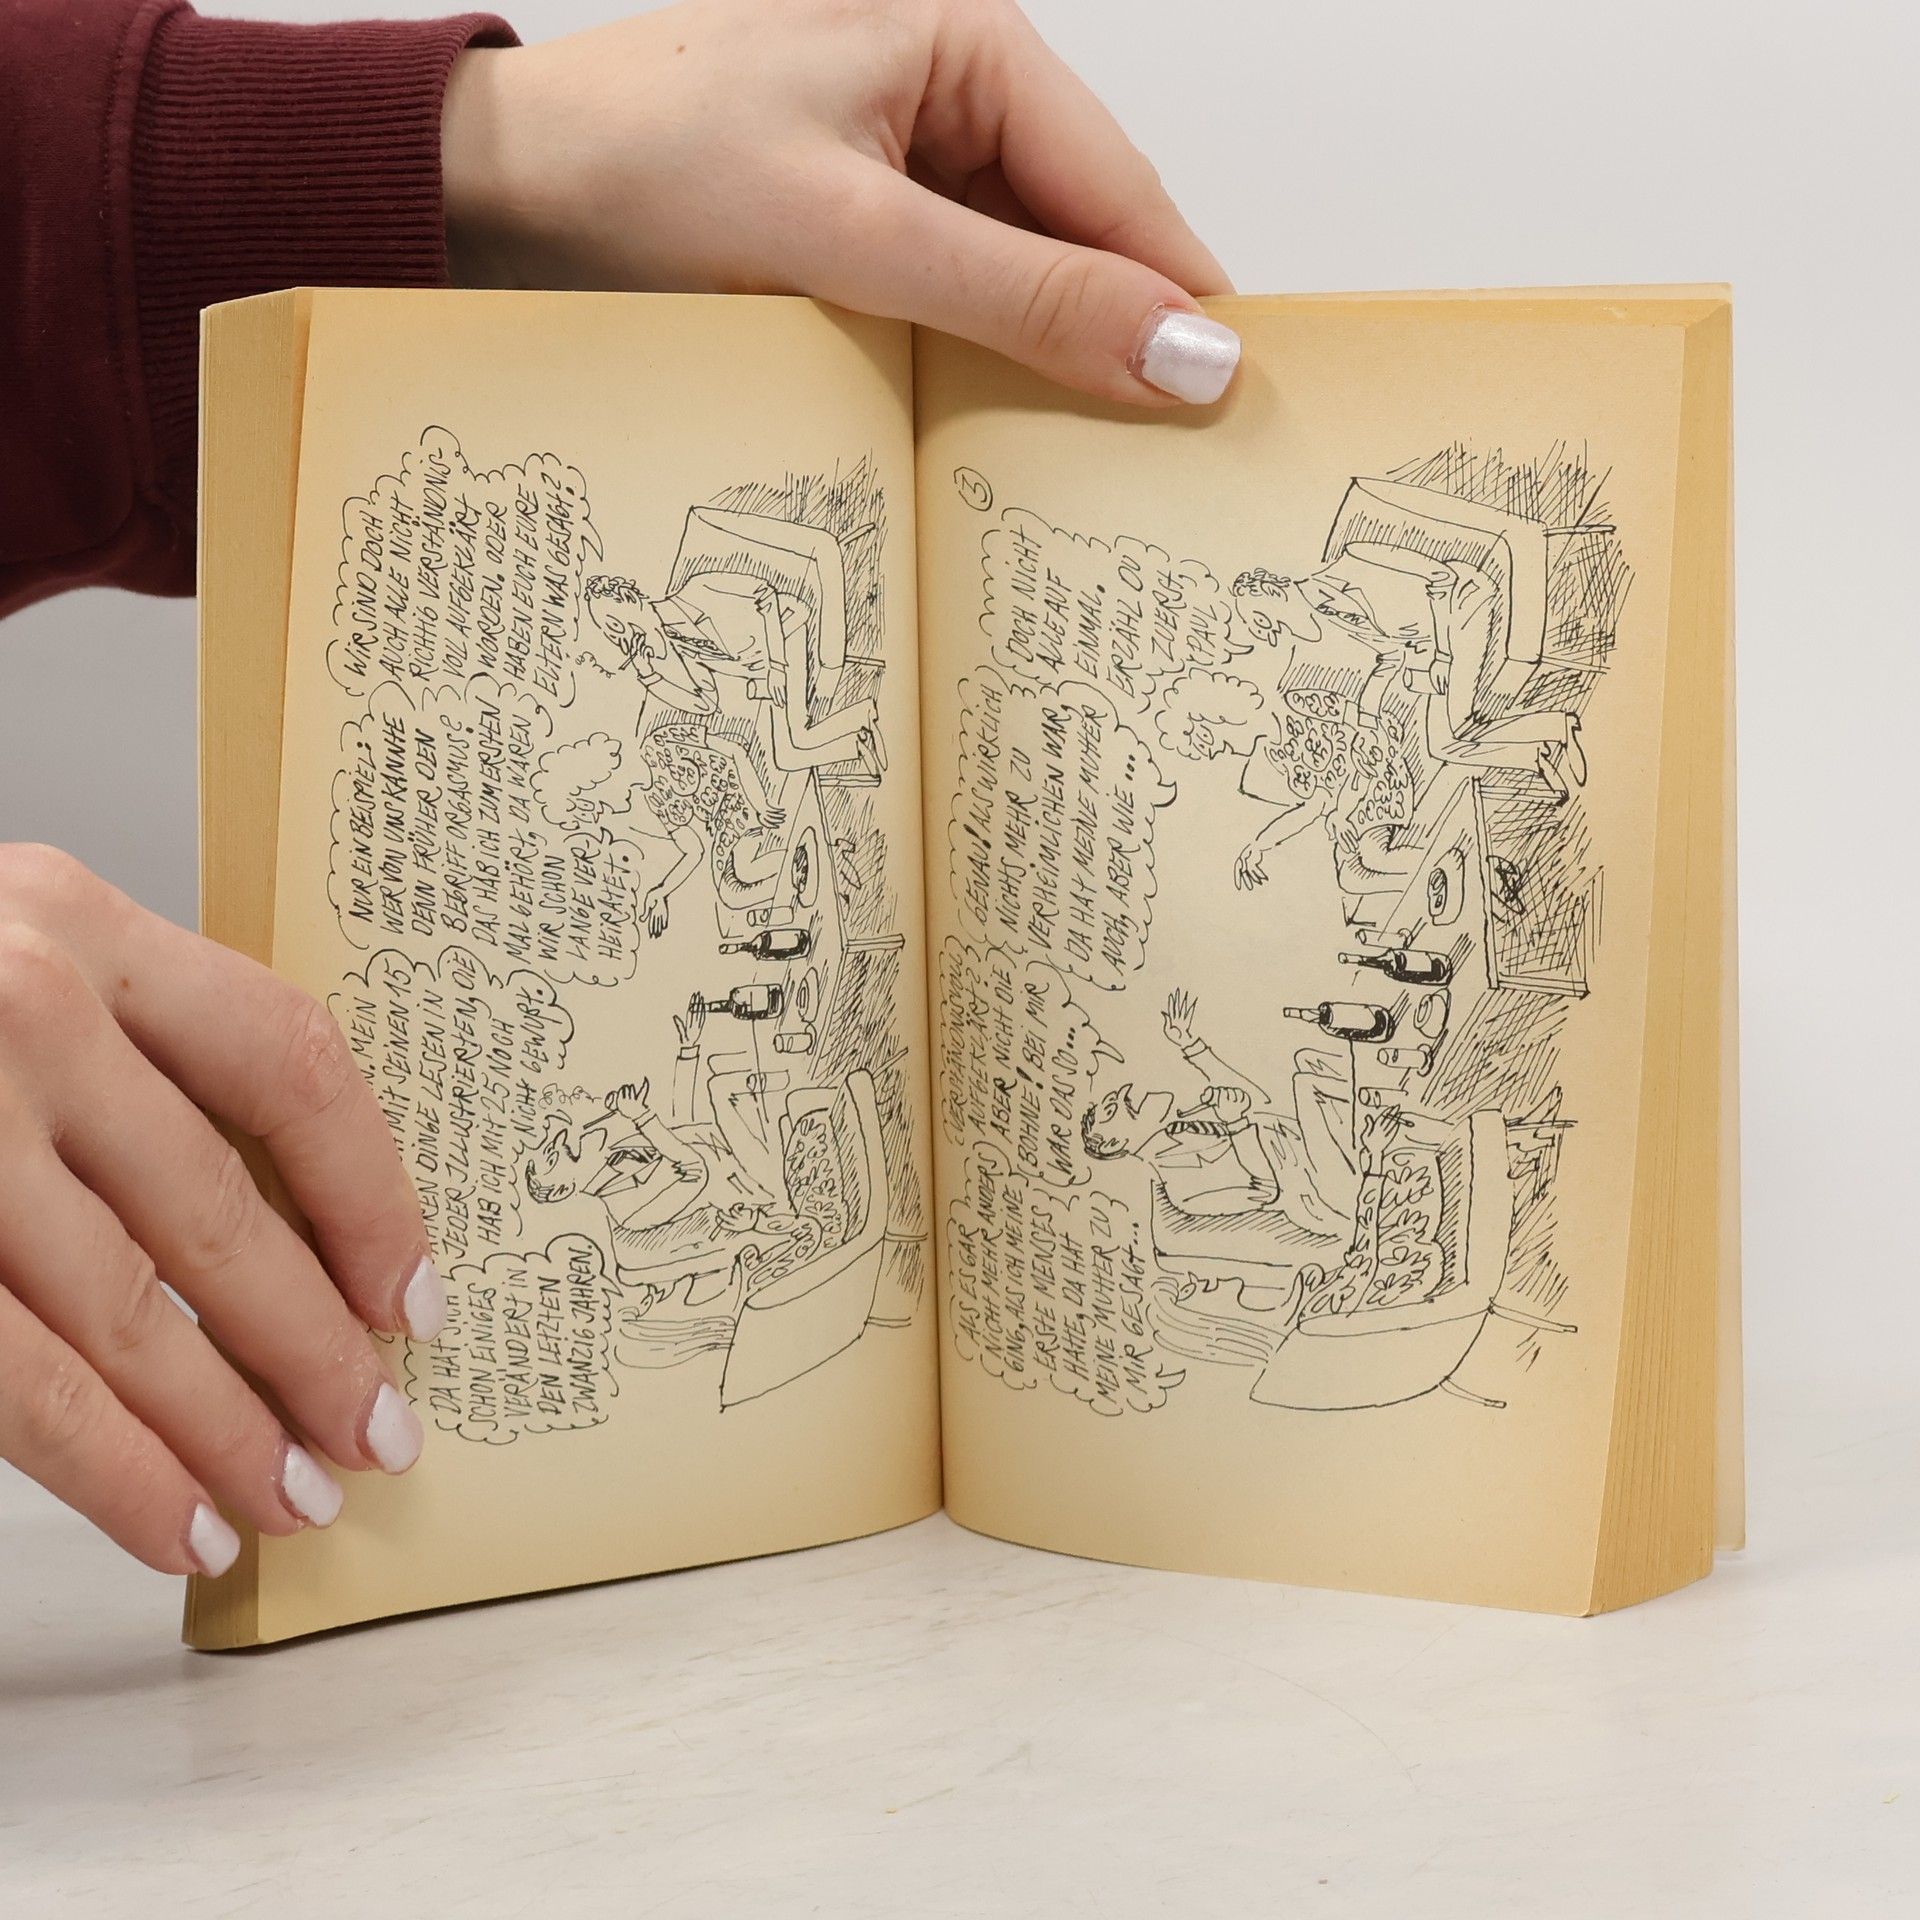 DA HAT SICH
SCHON EINIGES
VERÄNDERT IN
DEN LETZTEN
ZWANZIG JAHREN.
MEIN
MIT SEINEN 15
DINGE LESEN IN
JEDER ILLUSTRIERTEN, DIE
HAB ICH MIT 25 NOCH
NICHT GEWUßT.
NUR EIN BEISPIEL:
WER VON UNS KANNTE
DENN FRÜHER DEN
BEGRIFF ORGASMUS?
DAS HAB ICH ZUM ERSTEN
MAL GEHÖRT, DA WAREN
WIR SCHON
LANGE VER-
HEIRATET.
WIR SIND DOCH
AUCH ALLE NICHT
RICHTIG VERSTÄNDNIS-
VOLL AUFGEKLÄRT
WORDEN. ODER
HABEN EUCH EURE
ELTERN WAS GESAGT?
ALS ES GAR
NICHT MEHR ANDERS
GING, ALS ICH MEINE
ERSTE MENSES
HATTE, DA HAT
MEINE MUTTER ZU
MIR GESAGT...
VERSTÄNDNISVOLL
AUFGEKLÄRT?
ABER NICHT DIE
BOHNE! BEI MIR
WAR DAS SO...
GENAU! ALS WIRKLICH
NICHTS MEHR ZU
VERHEIMLICHEN WAR,
DA HAT MEINE MUTTER
AUCH, ABER WIE...
DOCH NICHT
ALLE AUF
EINMAL.
ERZÄHL DU
ZUERST,
PAUL
3